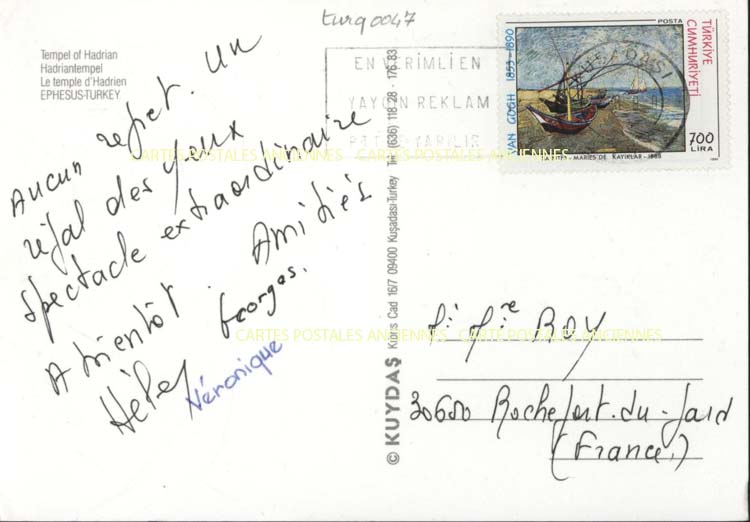 turq0047
Tempel of Hadrian
Hadriantempel
Le temple d'Hadrien
EPHESUS-TURKEY
Aucun regret. Un
régal des yeux
spectacle extraordinaire
A bientôt. Amitiés
Georges.
Véronique
EN VERIMLI EN
YAYGIN REKLAM
YAPILIR
KUŞADASI
POSTA
TÜRKİYE
CUMHURİYETİ
VAN GOGH 1853-1890
MARIES DE KAYIKLAR-1888
700
LIRA
© KUYDAŞ Kıbrıs Cad 16/7 09400 Kuşadası-Turkey Tel: (636) 118 28 - 176 83
CARTES POSTALES ANCIENNES CARTES POSTALES ANCIENNES
CARTES POSTALES ANCIENNES CARTES POSTALES ANCIENNES
ROY
Rochefort-du-Gard
(France)